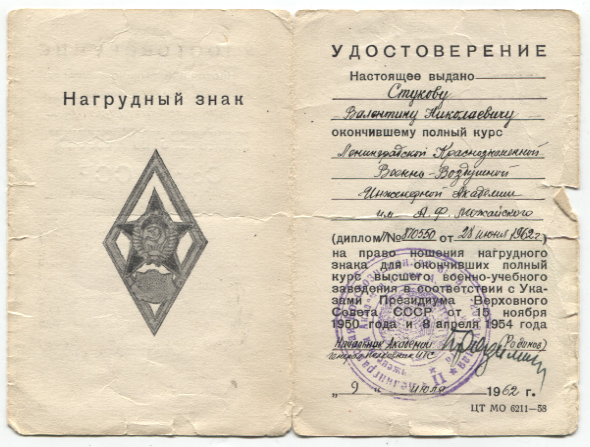 Нагрудный знак
УДОСТОВЕРЕНИЕ
Настоящее выдано
Стукову
Валентину Николаевичу
окончившему полный курс
Ленинградской Краснознаменной
Военно-Воздушной
Инженерной Академии
им. А. Ф. Можайского
(диплом № 870550 от 28 июня 1962 г)
на право ношения нагрудного
знака для окончивших полный
курс высшего военно-учебного
заведения в соответствии с Ука-
зами Президиума Верховного
Совета СССР от 15 ноября
1950 года и 8 апреля 1954 года
Начальник Академии
"9" июля 1962 г.
ЦТ МО 6211—58